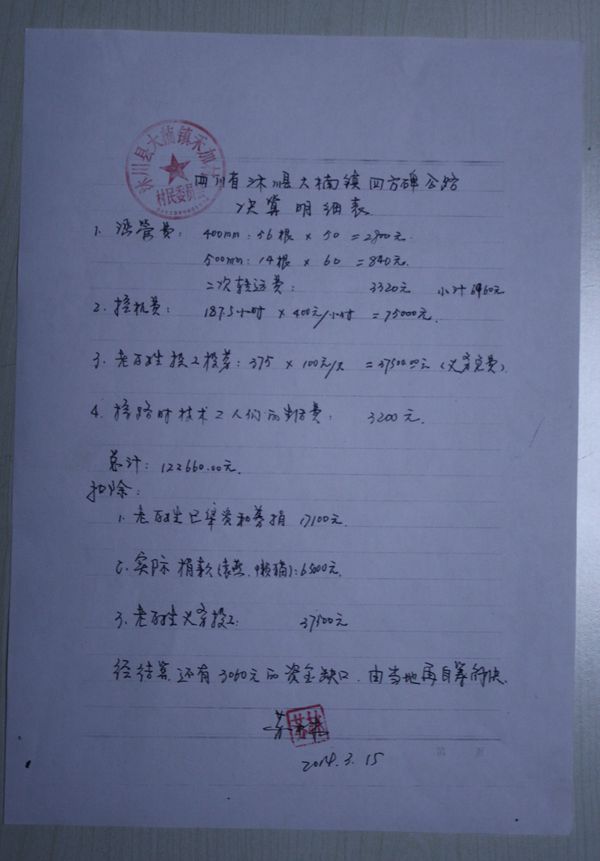 沐川县大楠镇禾加村
村民委员会
四川省沐川县大楠镇四方碑公路
决算明细表
1. 涵管费: 400mm: 56根 × 50 = 2800元.
500mm: 14根 × 60 = 840元.
二次转运费: 3320元 小计6960元
2. 挖机费: 187.5小时 × 400元/小时 = 75000元.
3. 老百姓投工投劳: 375 × 100元/天 = 37500.00元 (义务免费).
4. 挖路时技术工人们的生活费: 3200元.
总计: 122660.00元.
扣除:
1. 老百姓已筹资和募捐 17100元.
2. 实际捐款(袁燕、懒猫): 65000元.
3. 老百姓义务投工: 37500元
经结算, 还有3060元的资金缺口, 由当地再自筹解决.
2014.3.15
第 页